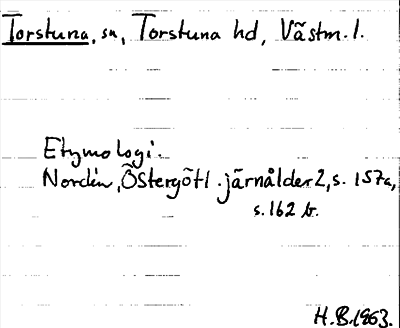 Torstuna, sn, Torstuna hd, Västm. l.
Etymologi.
Nordén, Östergötl. järnålder 2, s. 157a,
s. 162 b.
H.B. 1963.